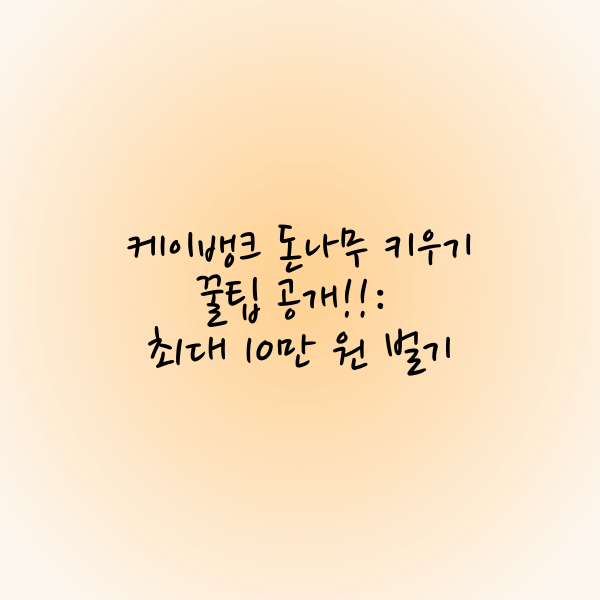 케이뱅크 돈나무 키우기
꿀팁 공개!!:
최대 10만 원 벌기